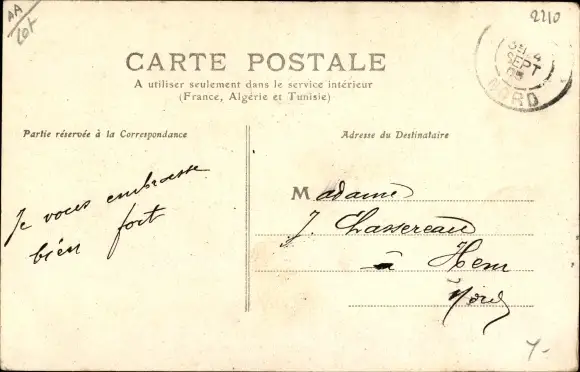 AA
lot
2210
CARTE POSTALE
A utiliser seulement dans le service intérieur
(France, Algérie et Tunisie)
4
SEPT
05
NORD
Partie réservée à la Correspondance
Adresse du Destinataire
Je vous embrasse
bien fort
Madame
J. Chassereau
à Hem
Nord
7-